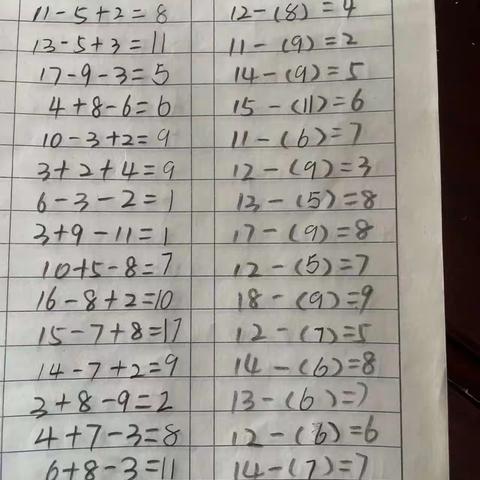 11-5+2=8 12-(8)=4
13-5+3=11 11-(9)=2
17-9-3=5 14-(9)=5
4+8-6=6 15-(11)=6
10-3+2=9 11-(6)=7
3+2+4=9 12-(9)=3
6-3-2=1 13-(5)=8
3+9-11=1 17-(9)=8
10+5-8=7 12-(5)=7
16-8+2=10 18-(9)=9
15-7+8=17 12-(7)=5
14-7+2=9 14-(6)=8
3+8-9=2 13-(6)=7
4+7-3=8 12-(6)=6
6+8-3=11 14-(7)=7